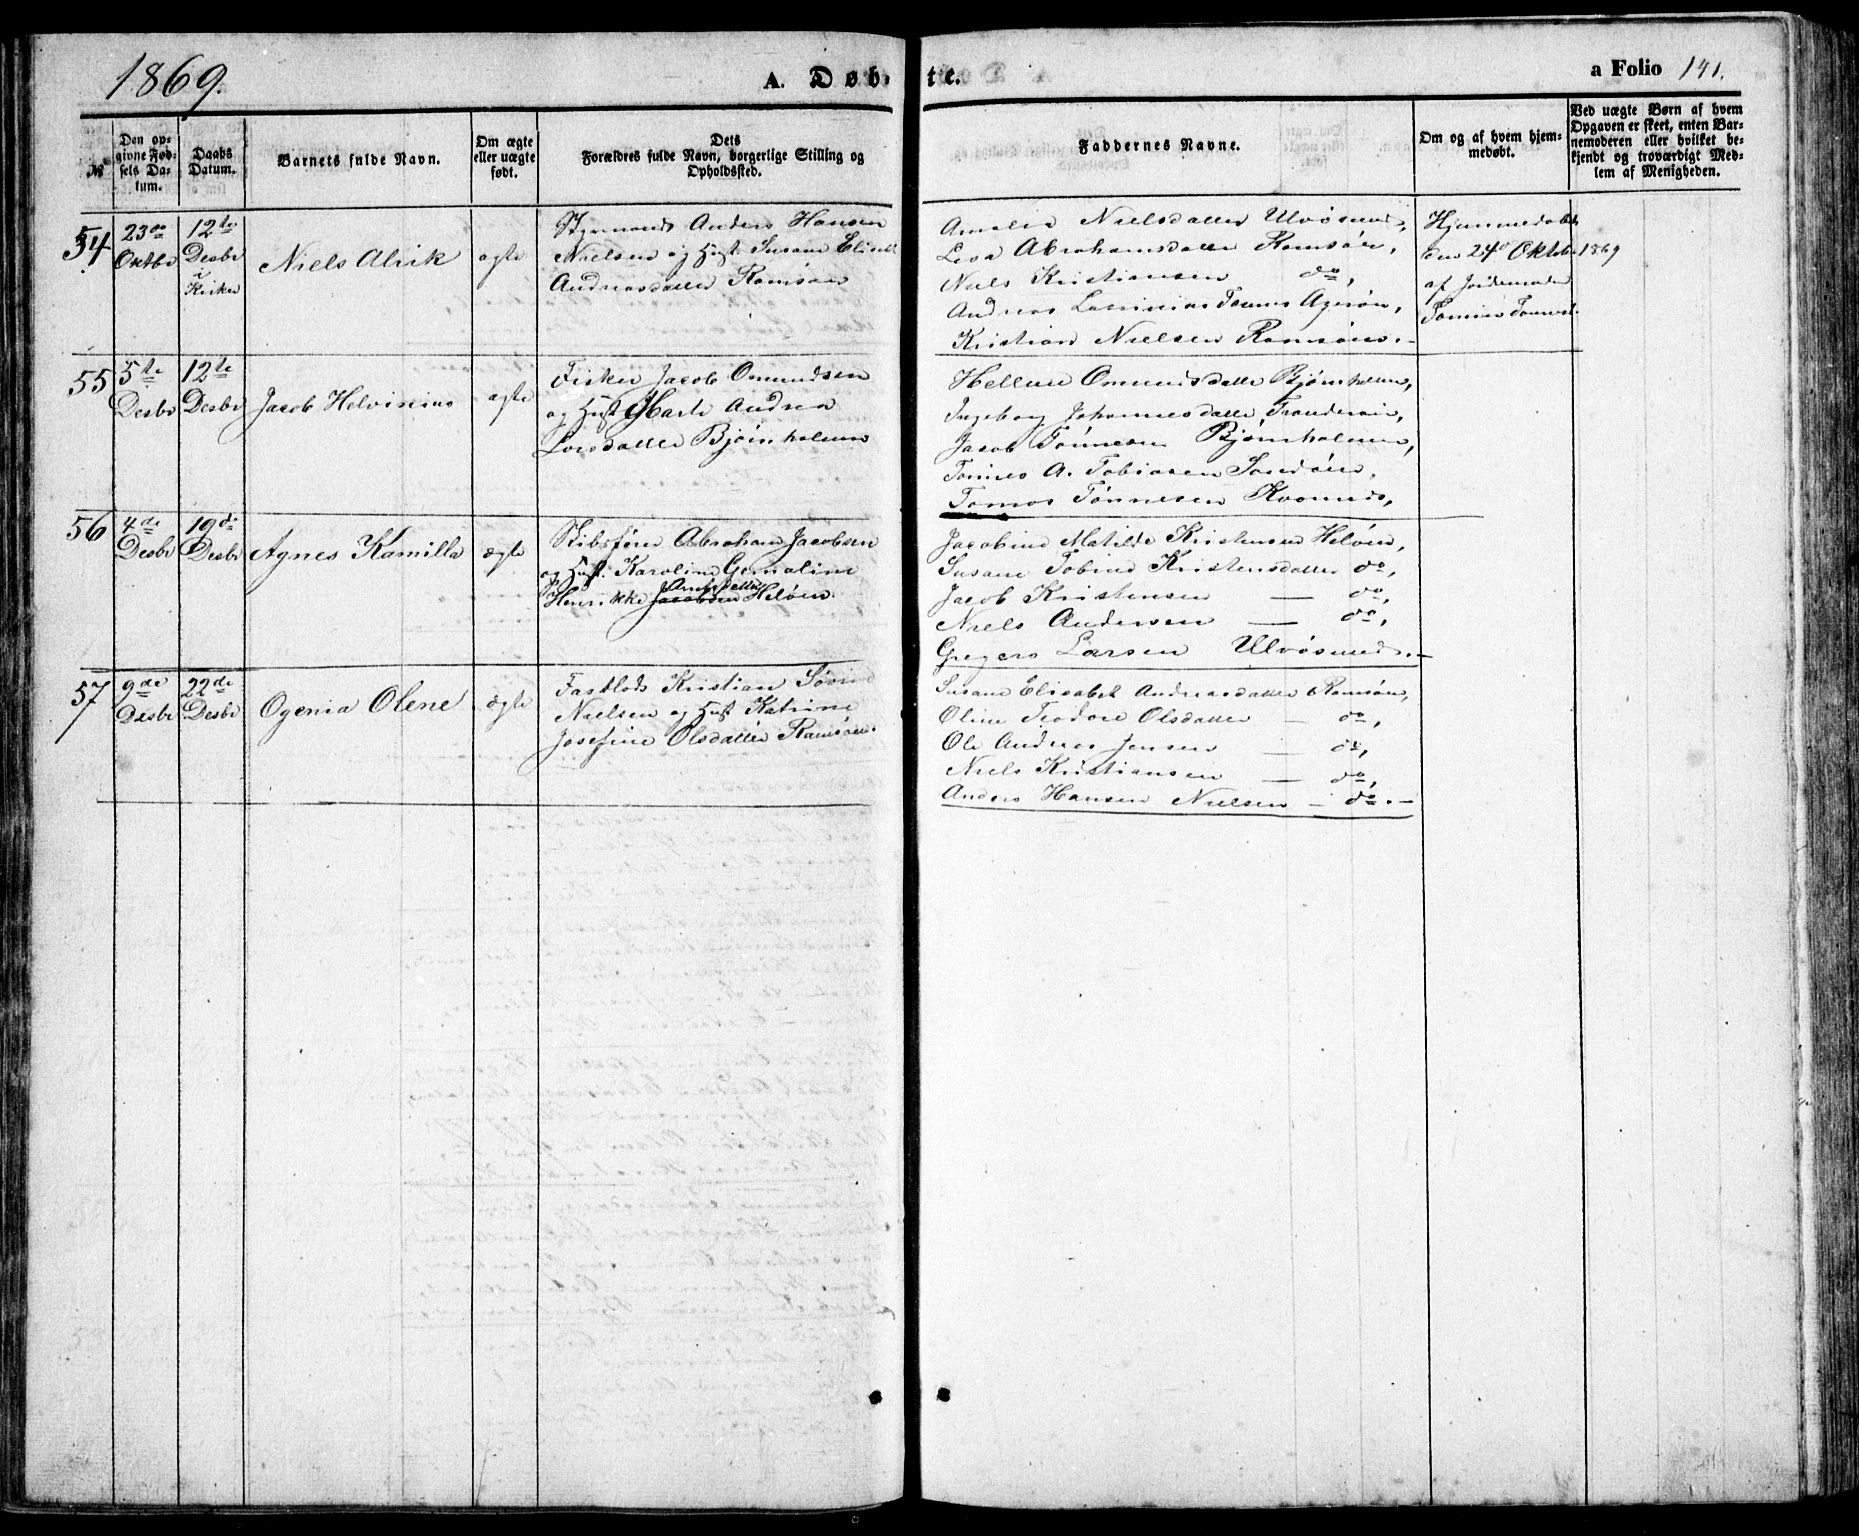 1869.
A. Døbte.
a Folio 141.
№
Den opgivne Fødsels Datum.
Daabs Datum.
Barnets fulde Navn.
Om ægte eller uægte født.
Dets Forældres fulde Navn, borgerlige Stilling og Opholdssted.
Faddernes Navne.
Om og af hvem hjemmedøbt.
Ved uægte Børn af hvem Opgaven er skeet, enten Barnemoderen eller hvilket bekjendt og troværdigt Medlem af Menigheden.
54
23de Oktbr
12te Desbr i Kirken
Niels Alrik
ægte
Styrmand Anders Hansen
Nielsen og Hust. Susane
Andreasdatter Ramsøen
Amalia Nielsdatter Ulvøsund,
Lesa Abrahamsdatter Ramsøen,
Niels Kristiansen do,
Andreas Tønnes Agerøn,
Kristian Nielsen Ramsøen.-
Hjemmedøbt
den 24de Oktober 1869
af Jordemoder
55
5te Desbr
12te Desbr
Jacob Helvinius
ægte
Fisker Jacob Omundsen
og Hust Marte Andrea
Larsdatter Bjørnholmen
Hellene Omundsdatter Bjørnholmen,
Ingeborg Johannesdatter
Jacob Tønnesen Bjørnholmen,
Tønnes A. Tobiasen
Tomas Tønnesen
56
4de Desbr
19de Desbr
Agnes Kamilla
ægte
Skibsfører Abraham Jacobsen
og Hust. Karoline Gemaline
Henrikke Jacobsen Arntsdatter Heløen
Jacobine Matilde Kristensen Heløen,
Susane Tobine Kristensdatter do,
Jacob Kristensen — do,
Niels Andersen — do,
Gregers Larsen Ulvøsund.-
57
9de Desbr
22de Desbr
Ogenia Olene
ægte
Kristian Sørine
Nielsen og Hust Katrine
Josefine Olsdatter Ramsøen.
Susane Elisabet Andreasdatter Ramsøen,
Oline Teodore Olsdatter — do,
Ole Andreas Jensen — do,
Niels Kristiansen — do,
Anders Hansen Nielsen — do.-